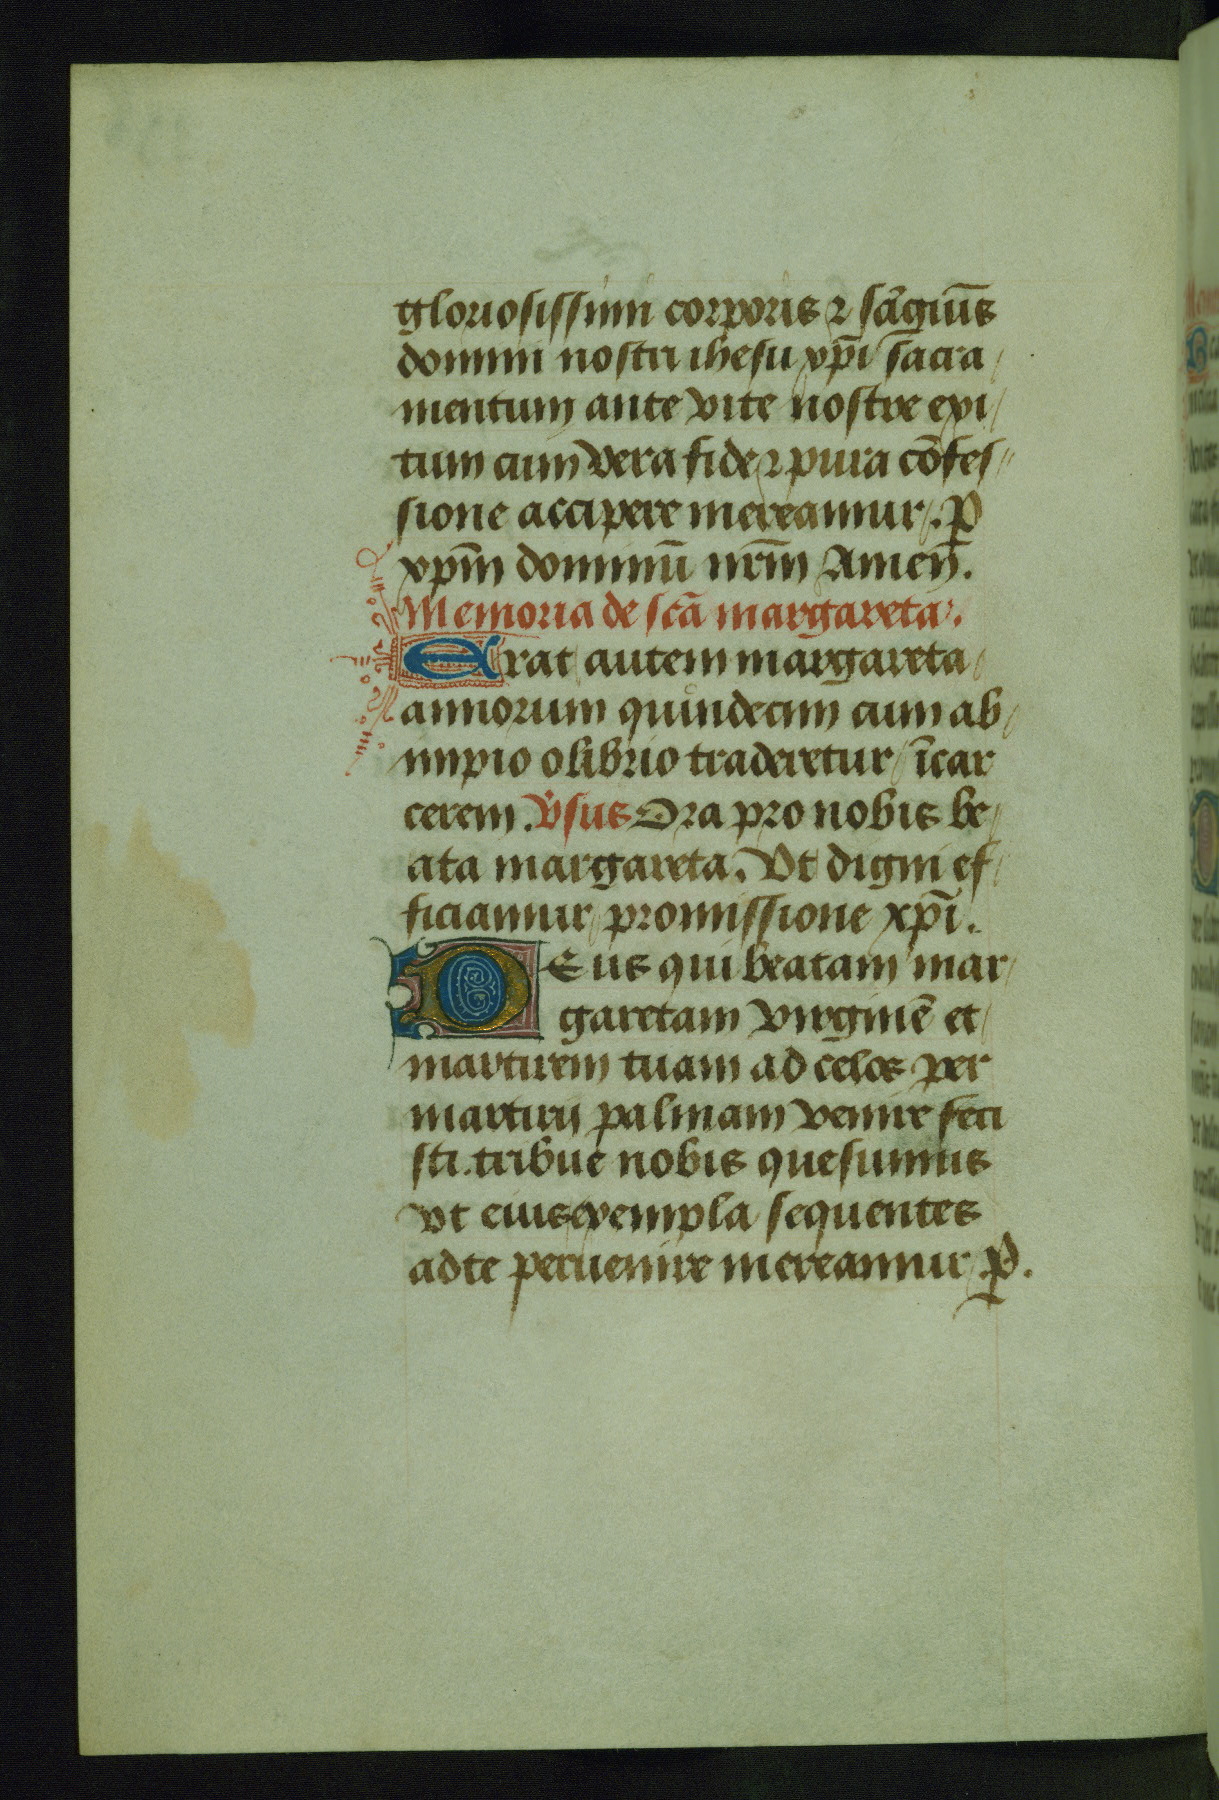 gloriosissimi corporis ⁊ sāguīs
domini nostri ihesu xp̄i sacra
mentum ante vite nostre exi
tum cum vera fide ⁊ pura cōfes
sione accipere mereamur. P̱
xp̄m dominū nr̄m Amen.
Memoria de scā margareta.
Erat autem margareta
annorum quindecim cum ab
impio olibrio traderetur īcar
cerem. V̄sus Ora pro nobis be
ata margareta. Vt digni ef
ficiamur promissione xp̄i.
Deus qui beatam mar
garetam virginē et
martirem tuam ad celos per
martirij palmam venire feci
sti. tribue nobis quesumus
vt eius exempla sequentes
ad te peruenire mereamur. P̱.